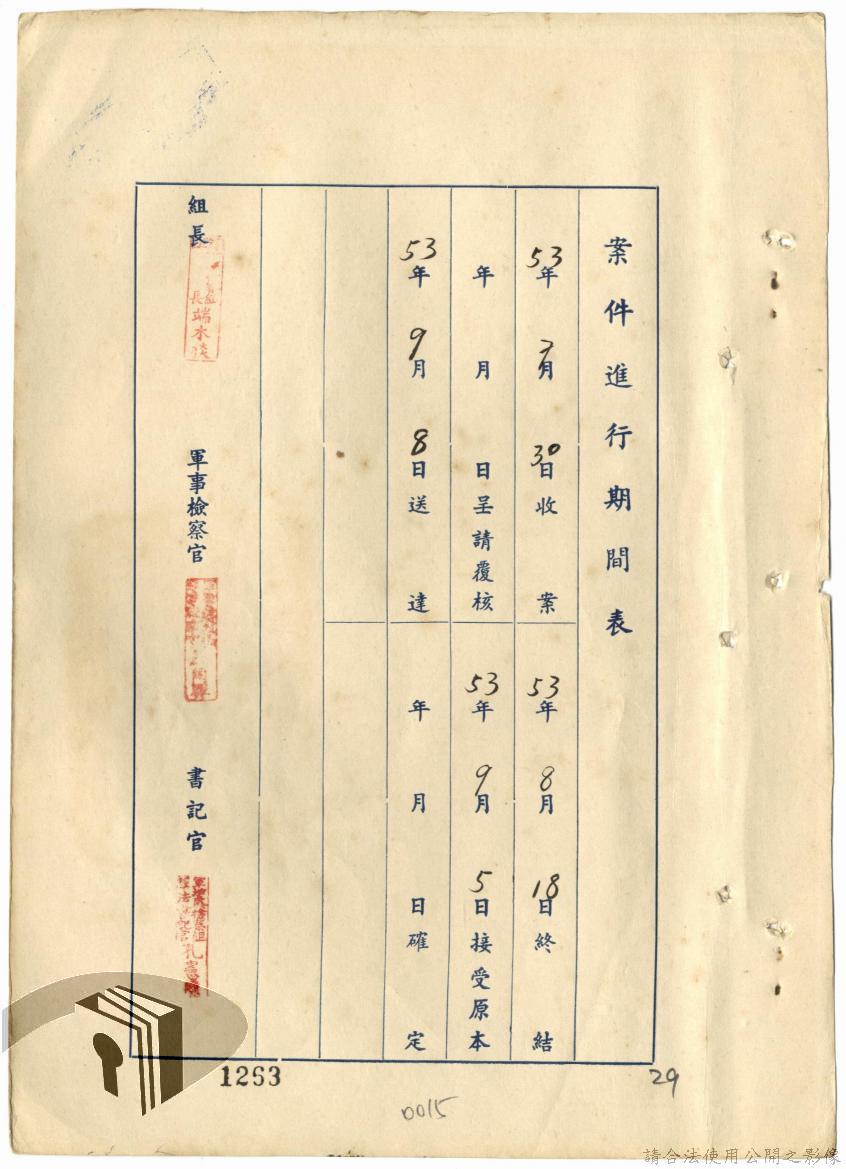 案件進行期間表
53年7月30日收案
53年8月18日終結
年月日呈請覆核
53年9月5日接受原本
53年9月8日送達
年月日確定
組長
組長端木
軍事檢察官
書記官
書記官孔憲
1263
29
0015
請合法使用公開之影像